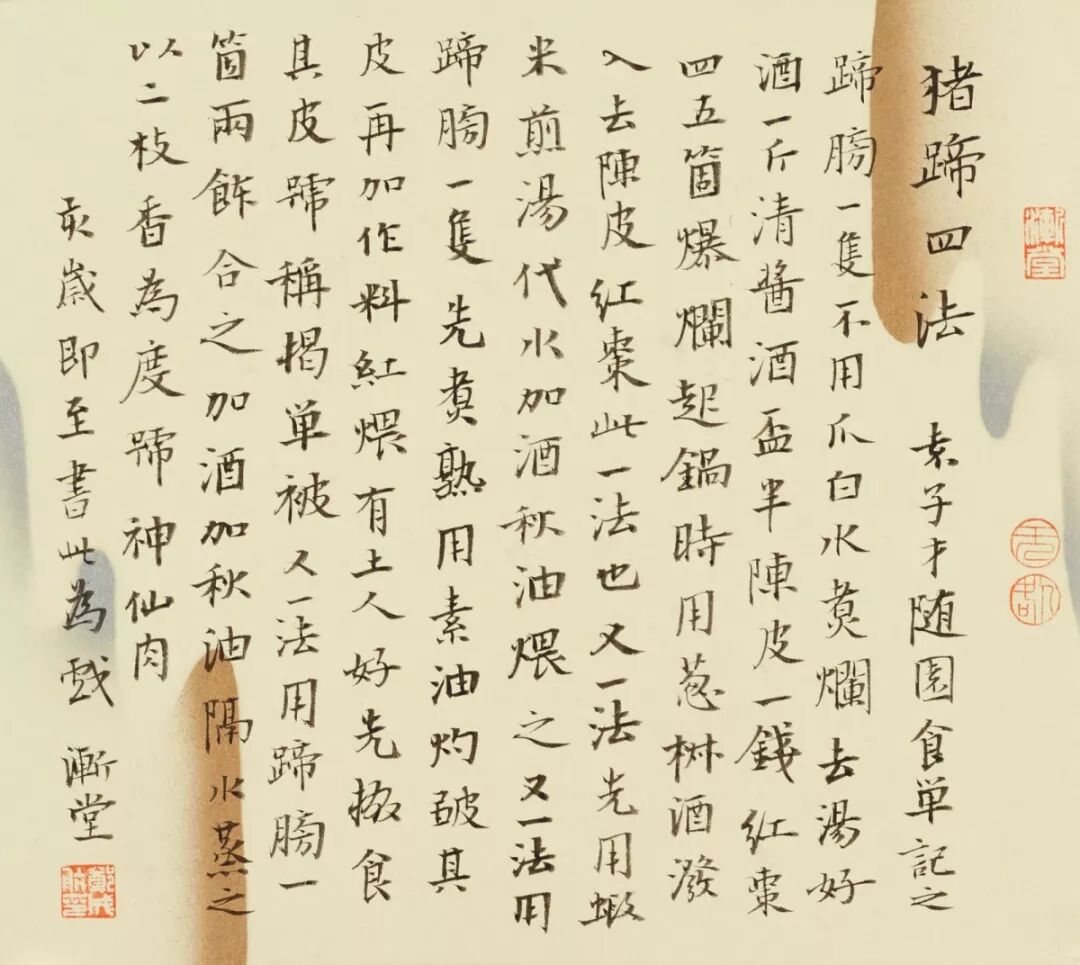 猪蹄四法 袁子才随園食単記之
蹄膀一隻不用爪白水煑爛去湯好
酒一斤清醬酒盃半陳皮一錢紅棗
四五箇爆爛起鍋時用葱椒酒潑
入去陳皮紅棗此一法也又一法先用蝦
米煎湯代水加酒秋油煨之又一法用
蹄膀一隻先煑熟用素油灼皺其
皮再加作料紅煨有土人好先掇食
其皮號稱揭单被又一法用蹄膀一
箇兩鉢合之加酒加秋油隔水蒸之
以二枝香為度號神仙肉
亥歲即至書此為戲 漸堂
漸堂